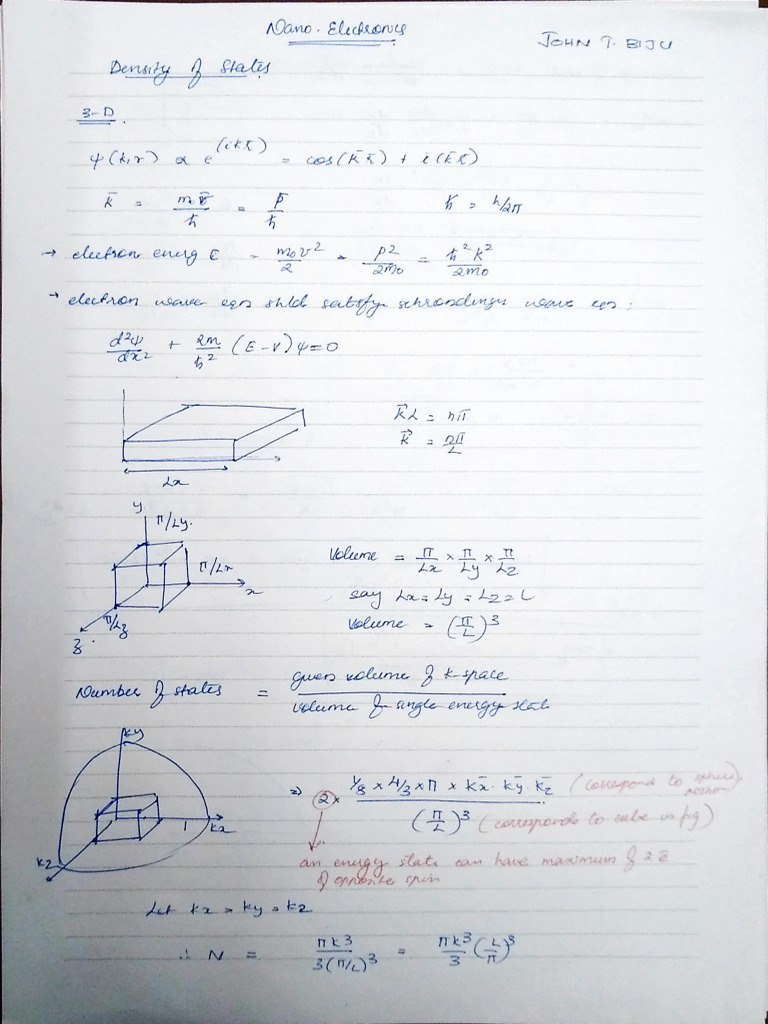 Nano-Electronics
JOHN T. BIJU
Density of States
3-D.
ψ(k,r) ∝ e^(ik̄r̄) = cos(k̄r̄) + i(k̄r̄)
k̄ = m₀v̄/ħ = p̄/ħ    ħ = h/2π
→ electron energ E = m₀v²/2 = p²/2m₀ = ħ²k²/2m₀
→ electron wave eqn shld satisfy schrondinger wave eqn:
d²ψ/dx² + 2m/ħ² (E-V)ψ=0
k⃗L = nπ
k⃗ = nπ/L
Lx
y
π/Ly
π/Lx
x
π/Lz
z
Volume = π/Lx × π/Ly × π/Lz
say Lx=Ly=Lz=L
Volume = (π/L)³
Number of states = given volume of k-space / volume of single energy state
ky
kx
kz
⇒ 2× 1/8 × 4/3 × π × k̄x · k̄y · k̄z / (π/L)³
(corresponds to sphere
(corresponds to cube in fig)
an energy state can have maximum of 2 ē
of opposite spin
Let kx = ky = kz
∴ N = πk³/3(π/L)³ = πk³/3 (L/π)³